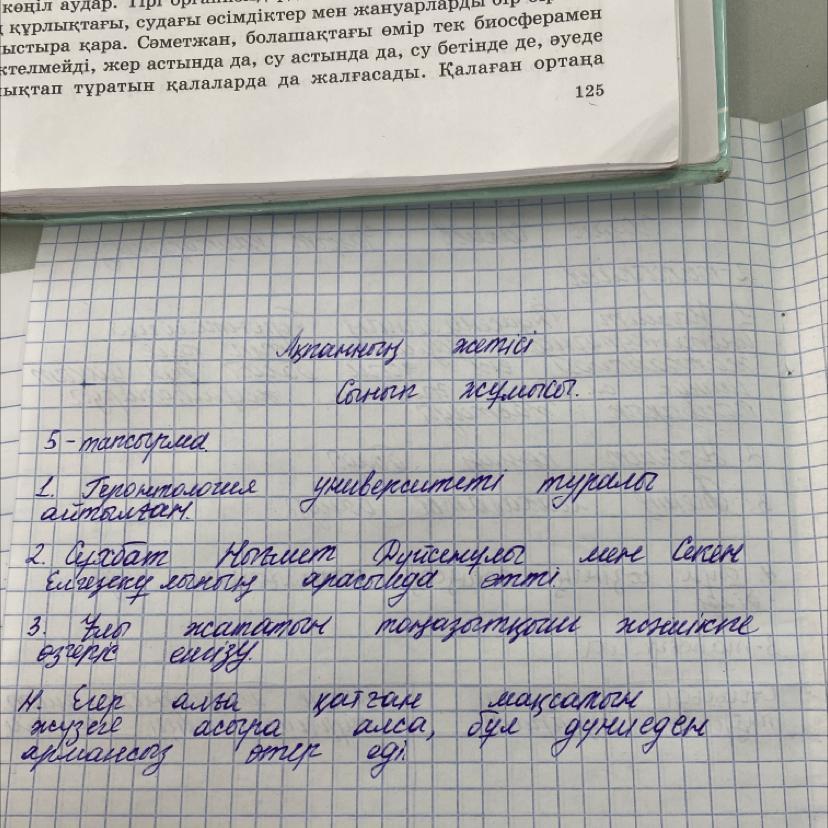 көңіл аудар. Тірі
құрлықтағы, судағы өсімдіктер мен жануарларды бір
ыстыра қара. Сәметжан, болашақтағы өмір тек биосферамен
ктелмейді, жер астында да, су астында да, су бетінде де, әуеде
ықтап тұратын қалаларда да жалғасады. Қалаған ортаңа
125
Ақпанның жетісі
Сынып жұмысы.
5-тапсырма.
1. Геронтология университеті туралы
айтылған.
2. Сұхбат Нығмет Дүйсенұлы мен Секен
Елгезекұлының арасында өтті.
3. Ұлы жататын тоңазытқыш жәшікке
өзгеріс енгізу.
4. Егер алға қатған мақсатын
жүзеге асыра алса, бұл дүниеден
армансыз өтер еді.